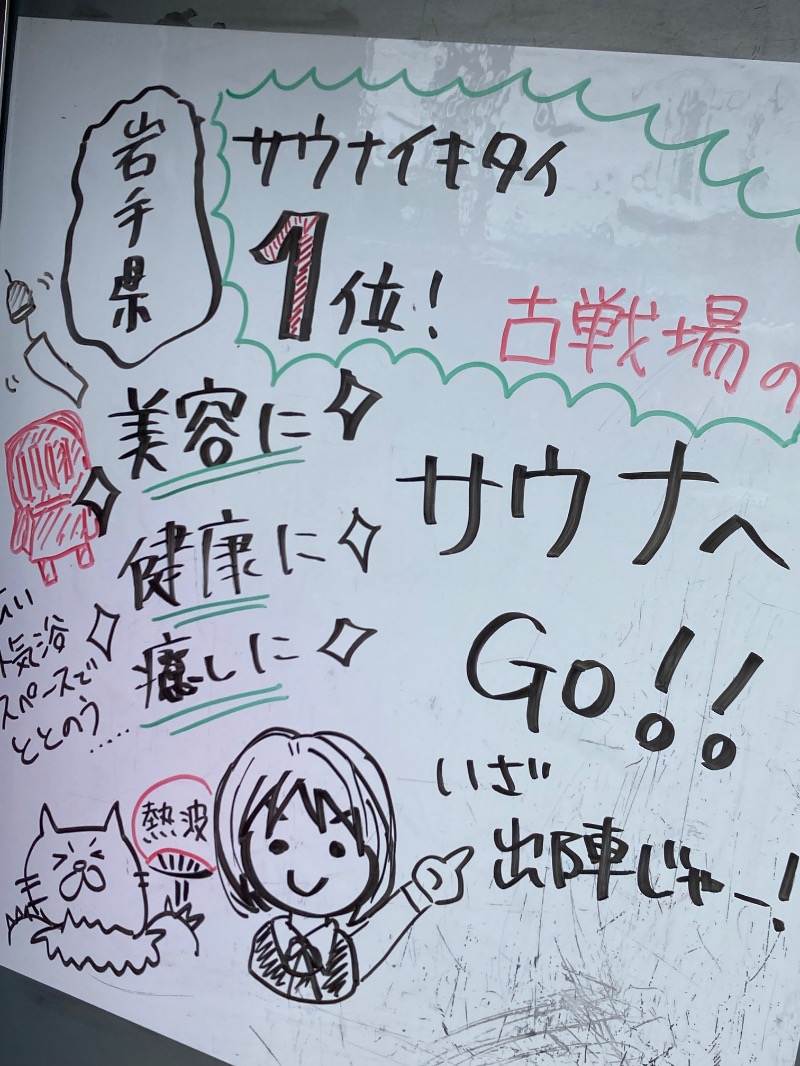 岩手県
サウナイキタイ
1位!
古戦場の
サウナへ
Go!!
いざ
出陣じゃー!
美容に
健康に
癒しに
広い
外気浴
スペースで
ととのう……
熱波